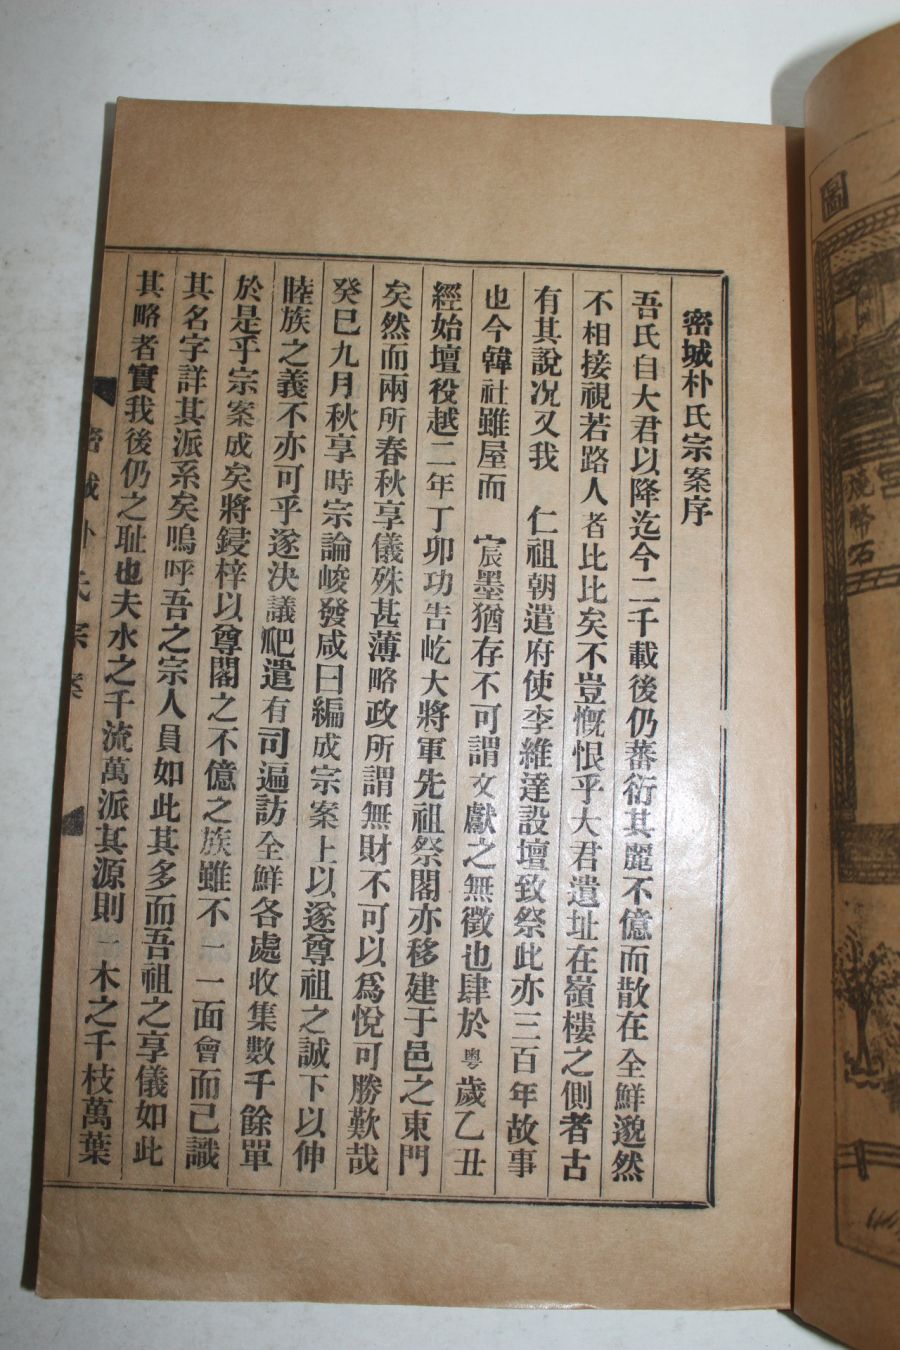 密城朴氏宗案序
吾氏自大君以降迄今二千載後仍蕃衍其麗不億而散在全鮮邈然
不相接視若路人者比比矣不豈慨恨乎大君遺址在嶺樓之側者古
有其說况又我 仁祖朝遣府使李維達設壇致祭此亦三百年故事
也今韓社雖屋而 宸墨猶存不可謂文獻之無徵也肆於粤歲乙丑
經始壇役越二年丁卯功告屹大將軍先祖祭閣亦移建于邑之東門
矣然而兩所春秋享儀殊甚薄略政所謂無財不可以爲悅可勝歎哉
癸巳九月秋享時宗論峻發咸曰編成宗案上以遂尊祖之誠下以伸
睦族之義不亦可乎遂決議爬遣有司遍訪全鮮各處收集數千餘單
於是乎宗案成矣將鋟梓以尊閣之不億之族雖不一一面會而己識
其名字詳其派系矣嗚呼吾之宗人員如此其多而吾祖之享儀如此
其略者實我後仍之恥也夫水之千流萬派其源則一木之千枝萬葉
密城朴氏宗案
圖
燒幣石